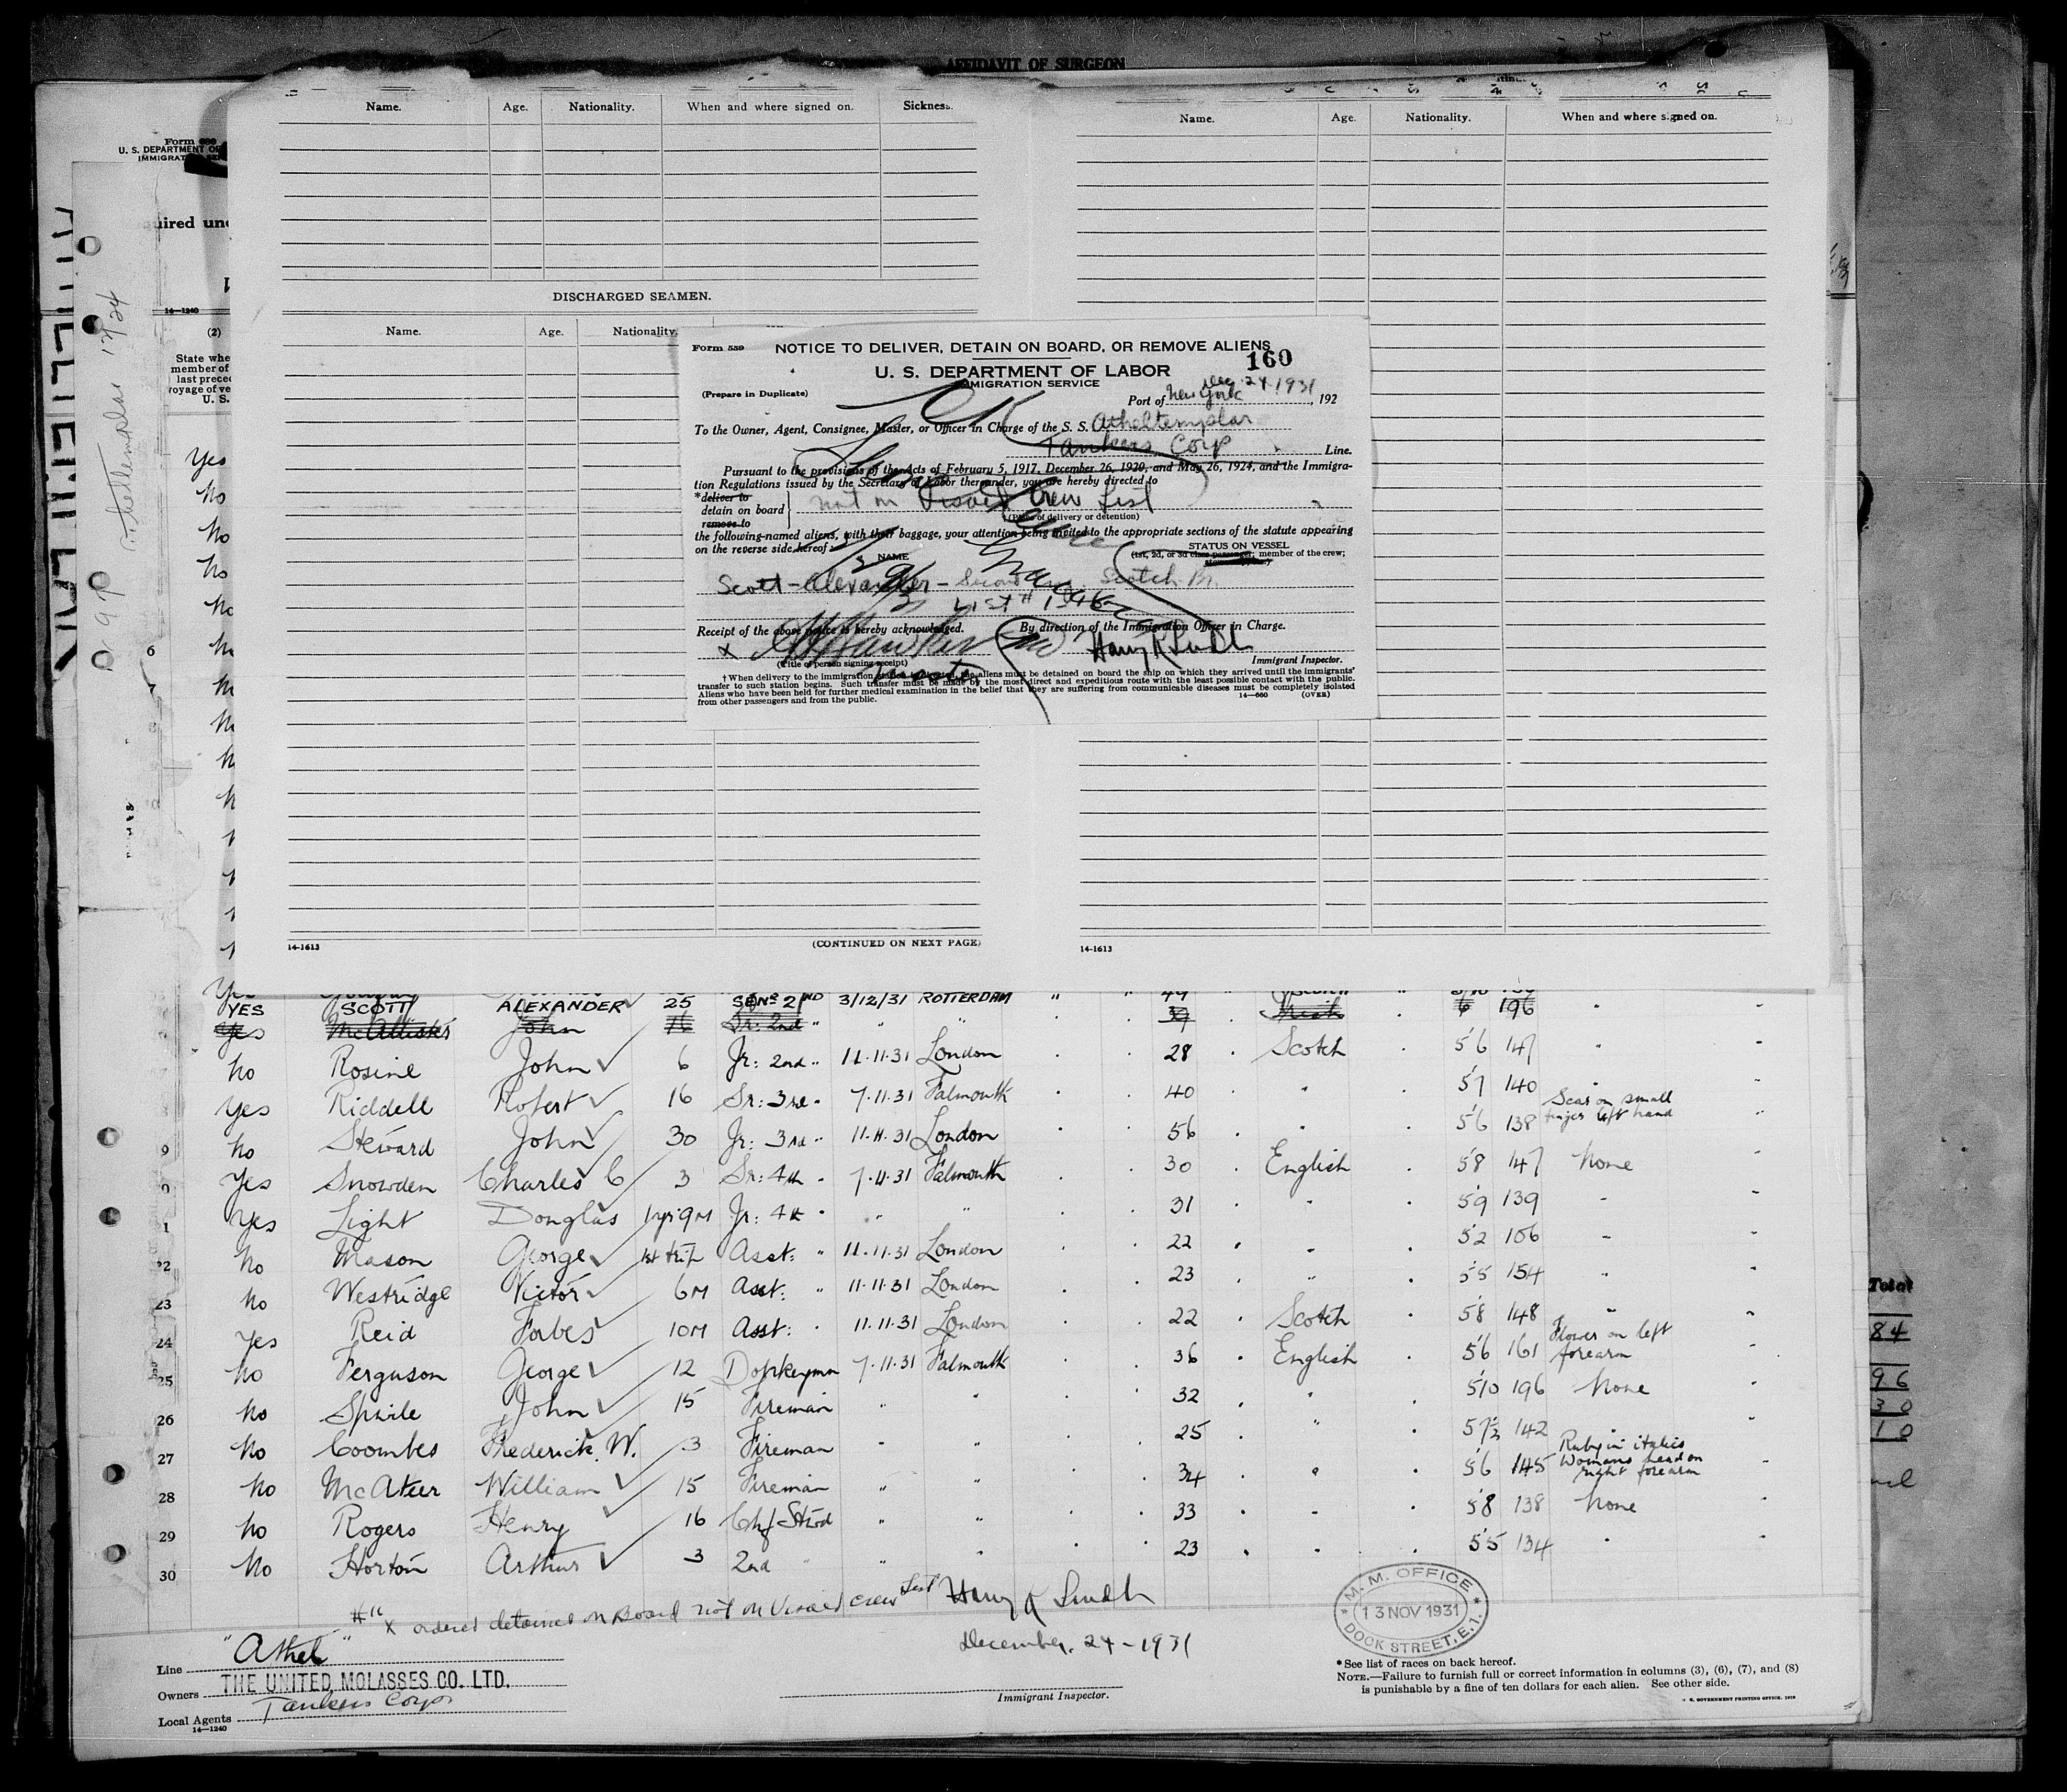 AFFIDAVIT OF SURGEON
Name. Age. Nationality. When and where signed on. Sickness.
Name. Age. Nationality. When and where signed on.
Form
U. S. DEPARTMENT OF
IMMIGRAT
uired und
14—1240
(2)
State whe
member of
last prece
voyage of ve
U. S.
DISCHARGED SEAMEN.
Name. Age. Nationality.
Form 559 NOTICE TO DELIVER, DETAIN ON BOARD, OR REMOVE ALIENS
160
U. S. DEPARTMENT OF LABOR
IMMIGRATION SERVICE
(Prepare in Duplicate)
Port of New York Dec 24 1931, 192
To the Owner, Agent, Consignee, Master, or Officer in Charge of the S. S. Atheltemplar
Tankers Corp Line.
Pursuant to the provisions of the Acts of February 5, 1917, December 26, 1920, and May 26, 1924, and the Immigra-
tion Regulations issued by the Secretary of Labor thereunder, you are hereby directed to
*deliver to
detain on board not on Visaed Crew List
remove to
(Place of delivery or detention)
the following-named aliens, with their baggage, your attention being invited to the appropriate sections of the statute appearing
on the reverse side hereof
NAME STATUS ON VESSEL
(1st, 2d, or 3d class passenger; member of the crew;
Scott - Alexander - Second Scotch Br.
Receipt of the above notice is hereby acknowledged. By direction of the Immigration Officer in Charge.
X Harry R Smith
(Title of person signing receipt) Immigrant Inspector.
† When delivery to the immigration station the aliens must be detained on board the ship on which they arrived until the immigrants'
transfer to such station begins. Such transfer must be made by the most direct and expeditious route with the least possible contact with the public.
Aliens who have been held for further medical examination in the belief that they are suffering from communicable diseases must be completely isolated
from other passengers and from the public. 14—660 (OVER)
14-1613 (CONTINUED ON NEXT PAGE) 14-1613
YES SCOTT ALEXANDER 25 2ND 3/12/31 ROTTERDAM " " 49 6 196
Yes McAllister John 16 Sr: 2nd " " " 39 Irish
No Rosine John 6 Jr: 2nd " 11.11.31 London 28 Scotch 5'6 147 "
Yes Riddell Robert 16 Sr: 3rd " 7.11.31 Falmouth 40 " 5'7 140 "
9 No Steward John 30 Jr: 3rd " 11.11.31 London 56 " 5'6 138 Scar on small finger left hand
0 Yes Snowden Charles C 3 Sr: 4th " 7.11.31 Falmouth 30 English 5'8 147 None
1 Yes Light Douglas 1yr 9M Jr: 4th " " " 31 " 5'9 139 "
22 No Mason George 1st trip Asst: " 11.11.31 London 22 " 5'2 106 "
23 No Westridge Victor 6M Asst: " 11.11.31 London 23 " 5'5 154 "
24 Yes Reid Forbes 10M Asst: " 11.11.31 London 22 Scotch 5'8 148 "
25 No Ferguson George 12 Donkeyman 7.11.31 Falmouth 36 English 5'6 161 Flower on left forearm
26 No John 15 Fireman " " 32 " 5'10 196 None
27 No Coombes Frederick. W. 3 Fireman " " 25 " 5'7½ 142 "
28 No McAteer William 15 Fireman " " 34 " 5'6 145 Womans head on right forearm
29 No Rogers Henry 16 Chf Stwd " " 33 " 5'8 138 None
30 No Horton Arthur 3 2nd " " " 23 " 5'5 134 "
X ordered detained on Board not on Visaed crew List Harry R Smith
December. 24 - 1931
M. M. OFFICE
13 NOV 1931
DOCK STREET, E.1.
Line "Athel"
Owners THE UNITED MOLASSES CO. LTD.
Local Agents Tankers Corp
14—1240
Immigrant Inspector.
*See list of races on back hereof.
NOTE.—Failure to furnish full or correct information in columns (3), (6), (7), and (8)
is punishable by a fine of ten dollars for each alien. See other side.
Total
84
96
30
10